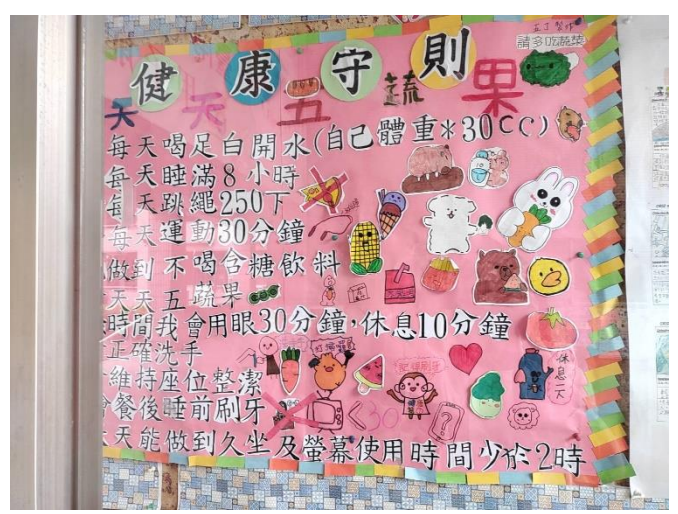 請多吃蔬菜
健康守則
天天五蔬果
每天喝足白開水(自己體重*30CC)
每天睡滿8小時
每天跳繩250下
每天運動30分鐘
做到不喝含糖飲料
天天五蔬果
時間我會用眼30分鐘,休息10分鐘
正確洗手
維持座位整潔
餐後睡前刷牙
<30
休息一天
天能做到久坐及螢幕使用時間少於2時